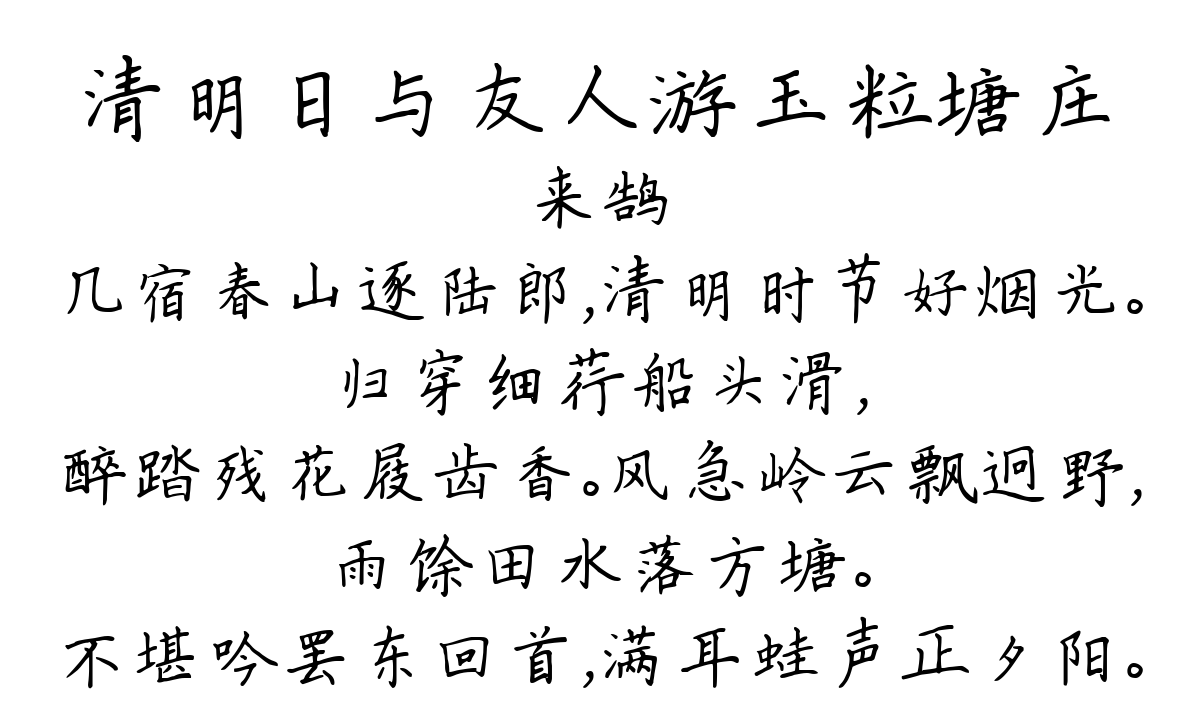 清明日与友人游玉粒塘庄
来鹄
几宿春山逐陆郎,清明时节好烟光。
归穿细荇船头滑,
醉踏残花屐齿香。风急岭云飘迥野,
雨馀田水落方塘。
不堪吟罢东回首,满耳蛙声正夕阳。